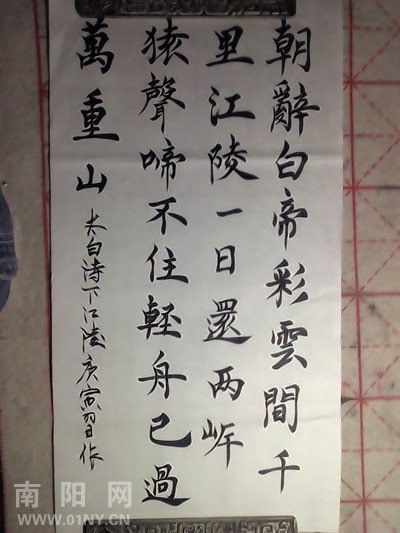 朝辭白帝彩雲間千
里江陵一日還两岸
猿聲啼不住軽舟已過
萬重山
太白诗下江陵庚寅習作
南阳网
WWW.01NY.CN